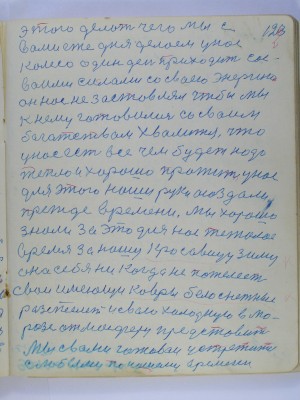 этого делат чего мы с 128
вами сже дня делаем у нас
колесо один ден приходит со
своими силами со своей Энергии
он нас не заставлял чтбы мы
к нему готовилис со своим
богатством хвалитус, что
у нас ест все чем будет надо
тепло и хорошо прожит у нас
для этого наши руки создали
прежде времени. мы хорошо
знали за Это для нас тежолае
время за нашу красавицу зиму
она себя ни когда не пожелеет
свои имеющи ковры белоснежные
разстелит и сваю холодную в мо-
розе атмосферу представит
мы с вами готовы устретит
с любовию по нашему времени